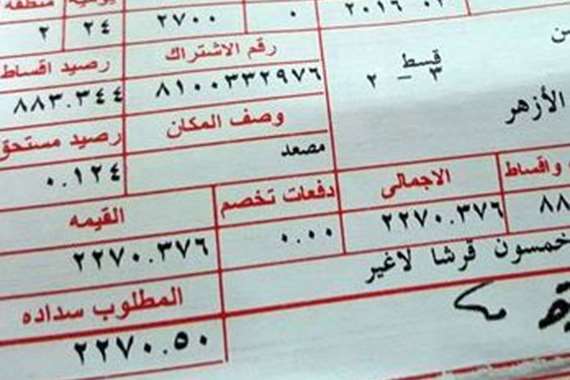 يومية منطقه
٢٠١٦
٠ ٢٧٠٠ ٢٤ ٢
رقم الاشتراك رصيد اقساط
٨١٠٠٣٣٢٩٧٦ ٨٨٣.٣٤٤
قسط
٢ – ٣
الأزهر
وصف المكان رصيد مستحق
مصعد ٠.١٢٤
واقساط الاجمالى دفعات تخصم القيمه
٨٨ ٢٢٧٠.٣٧٦ ٠.٠٠ ٢٢٧٠.٣٧٦
خمسون قرشا لاغير
المطلوب سداده
٢٢٧٠.٥٠